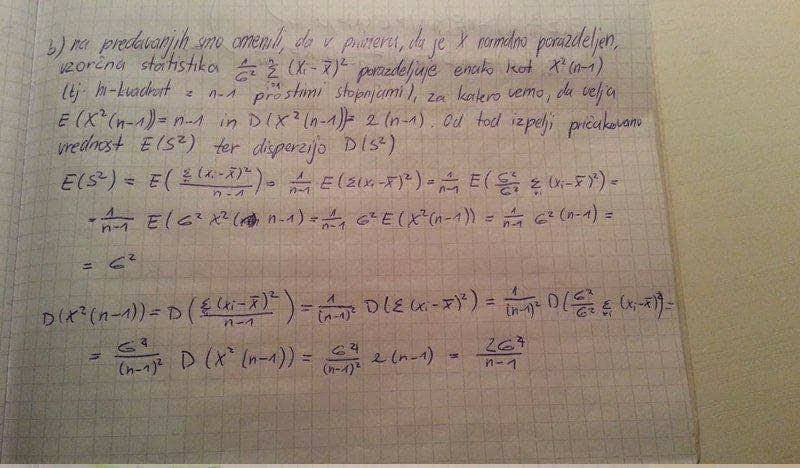 b) na predavanjih smo omenili, da v primeru, da je X normalno porazdeljen,
vzorčna statistika 1/σ² Σ (Xᵢ - X̄)² porazdeljuje enako kot X²(n-1)
(tj. hi-kvadrat z n-1 prostimi stopnjami), za katero vemo, da velja
E(X²(n-1)) = n-1 in D(X²(n-1)) = 2(n-1). Od tod izpelji pričakovano
vrednost E(S²) ter disperzijo D(S²)
E(S²) = E( Σ(xᵢ-x̄)² / n-1 ) = 1/n-1 E(Σ(xᵢ-x̄)²) = 1/n-1 E( σ²/σ² Σ(xᵢ-x̄)² ) =
= 1/n-1 E( σ² X²( n-1) = 1/n-1 σ² E(X²(n-1)) = 1/n-1 σ² (n-1) =
= σ²
D(X²(n-1)) = D( Σ(xᵢ-x̄)² / n-1 ) = 1/(n-1)² D(Σ(xᵢ-x̄)²) = 1/(n-1)² D( σ²/σ² Σ (xᵢ-x̄)² ) =
= σ⁴/(n-1)² D (X² (n-1)) = σ⁴/(n-1)² 2(n-1) = 2σ⁴/n-1